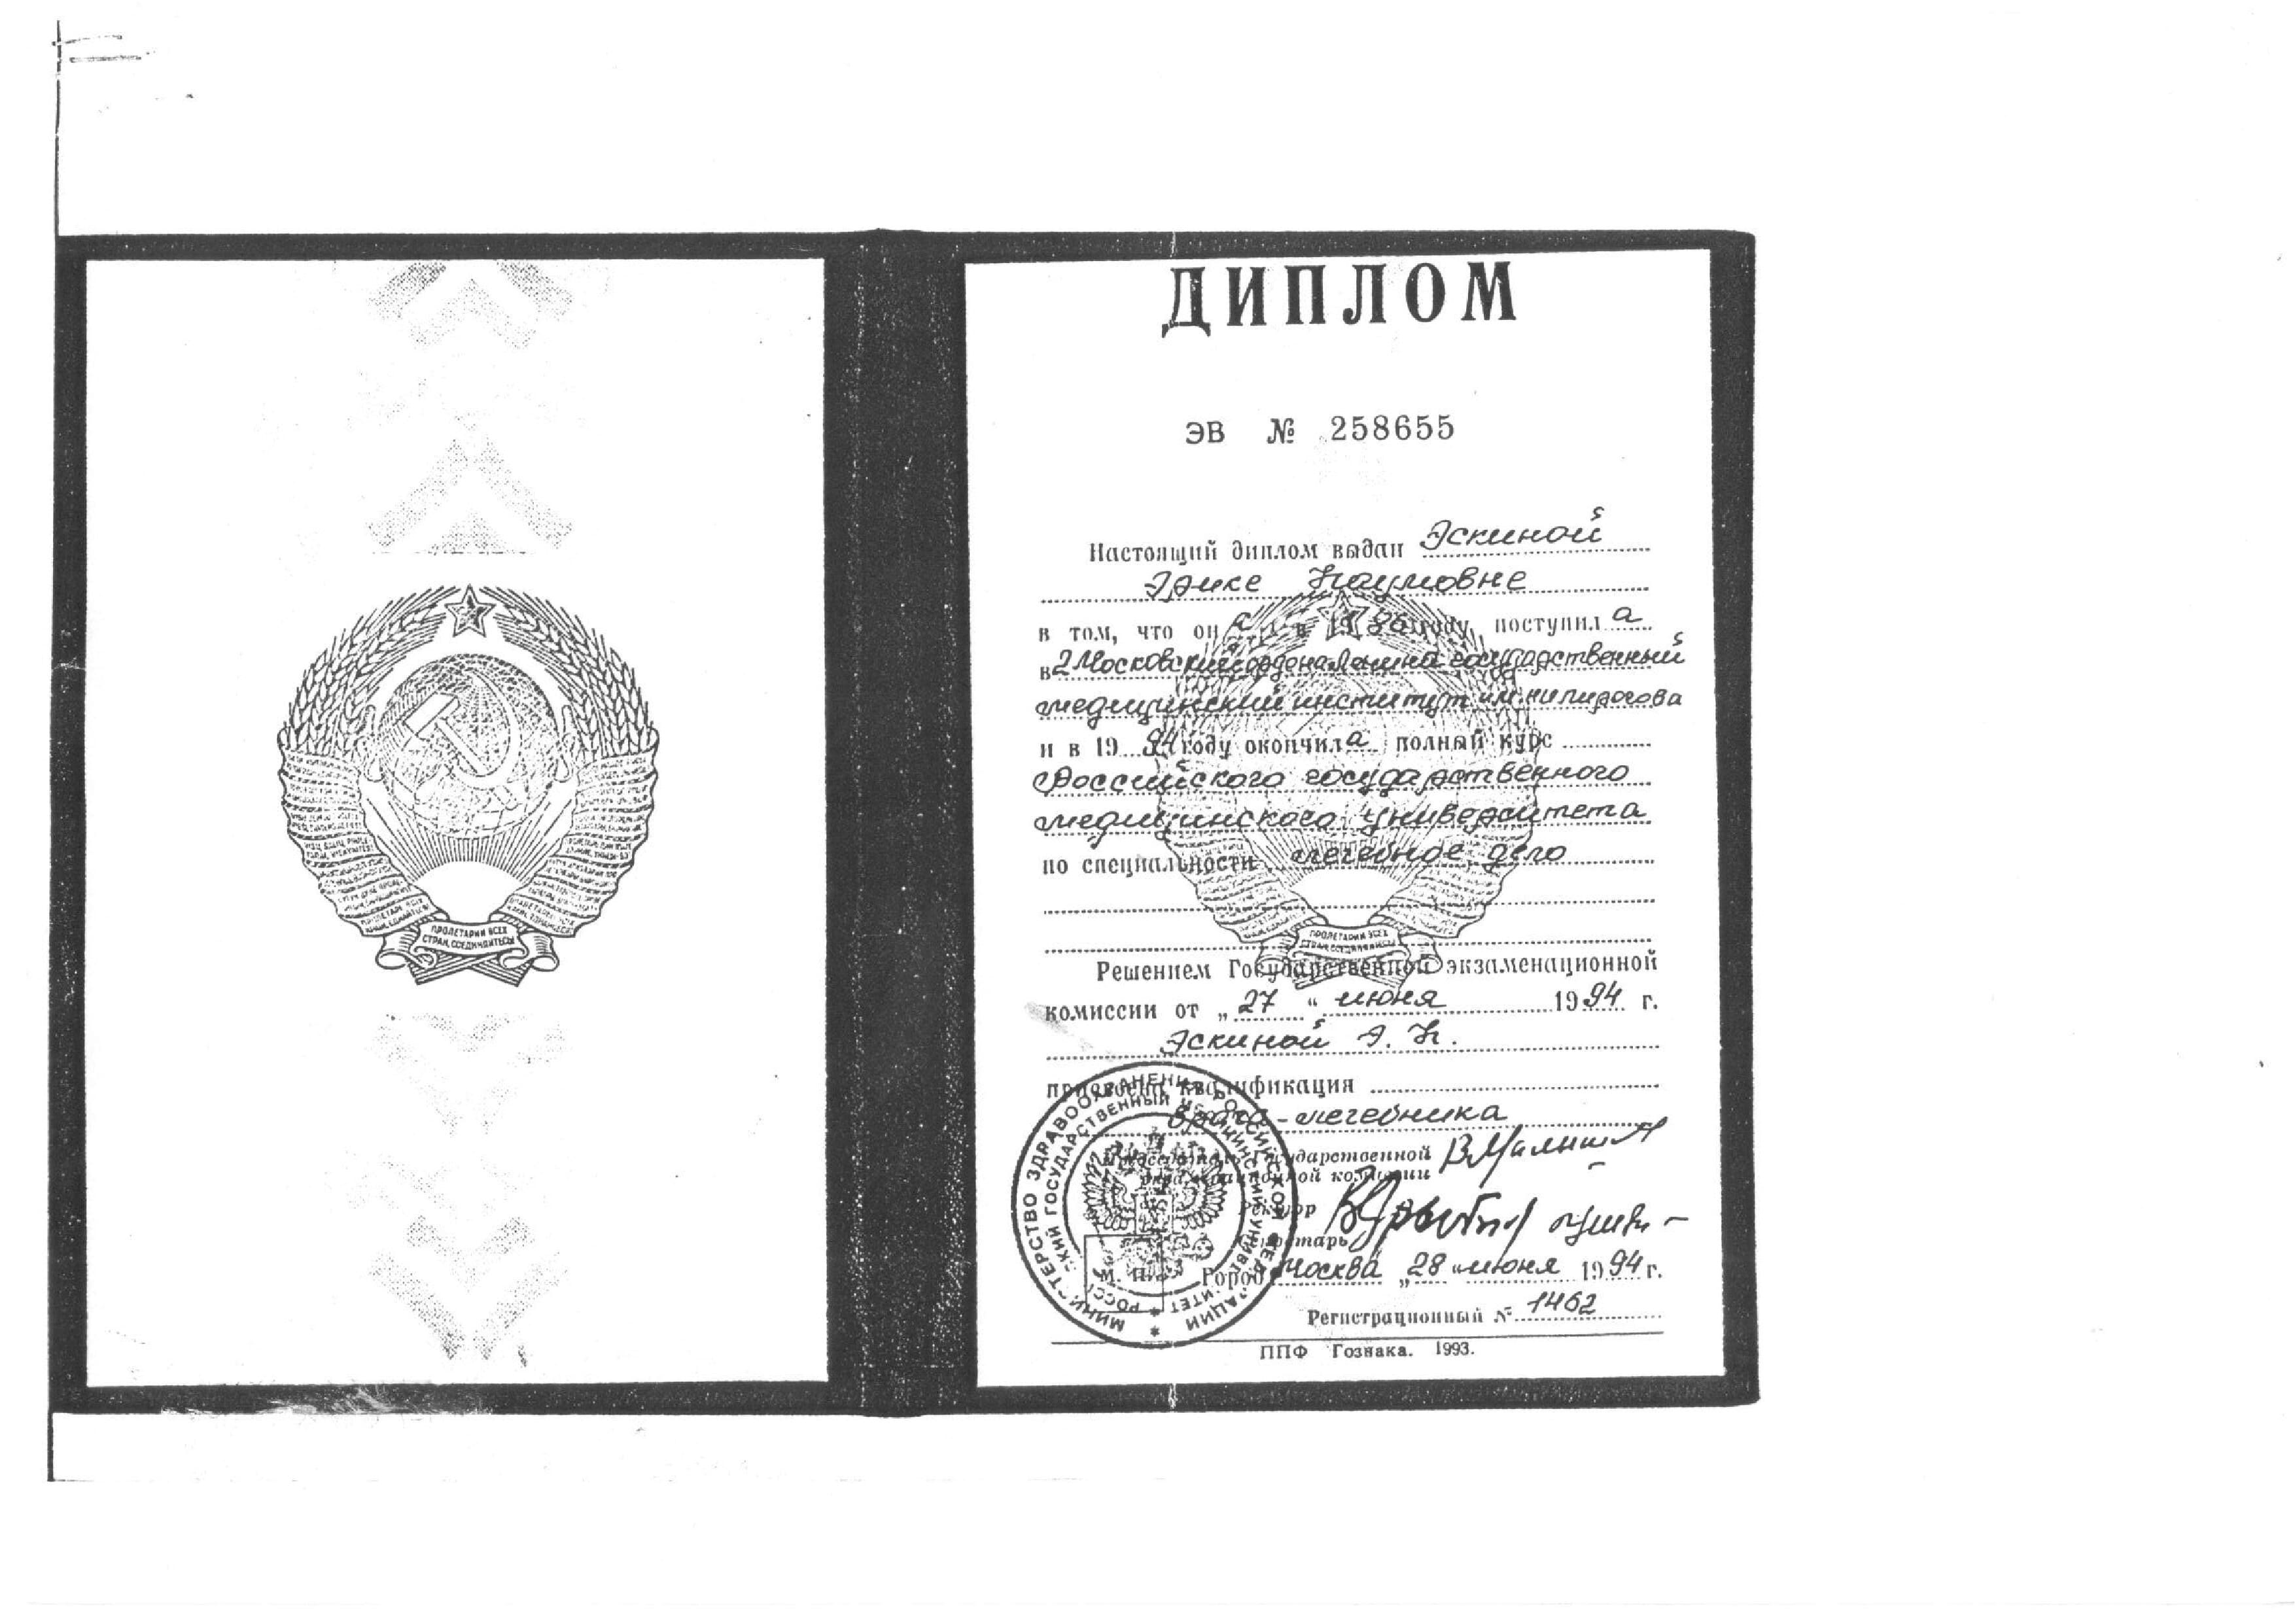 ПРОЛЕТАРИИ ВСЕХ
СТРАН, СОЕДИНЯЙТЕСЬ!
ДИПЛОМ
ЭВ № 258655
Настоящий диплом выдан Эскиной
Эрике Наумовне
в том, что он а в 19 86 году поступил а
в 2 Московский ордена Ленина государственный
медицинский институт им. Н.И. Пирогова
и в 19 94 году окончил а полный курс
Российского государственного
медицинского университета
по специальности лечебное дело
ПРОЛЕТАРИИ ВСЕХ
СТРАН, СОЕДИНЯЙТЕСЬ!
Решением Государственной экзаменационной
комиссии от „27“ июня 19 94 г.
Эскиной Э. Н.
присвоена квалификация
врача-лечебника
Председатель Государственной
экзаменационной комиссии
Ректор
Секретарь
М. П. Город Москва „28“ июня 19 94 г.
Регистрационный № 1462
ППФ Гознака. 1993.
МИНИСТЕРСТВО ЗДРАВООХРАНЕНИЯ РОССИЙСКОЙ ФЕДЕРАЦИИ
РОССИЙСКИЙ ГОСУДАРСТВЕННЫЙ МЕДИЦИНСКИЙ УНИВЕРСИТЕТ